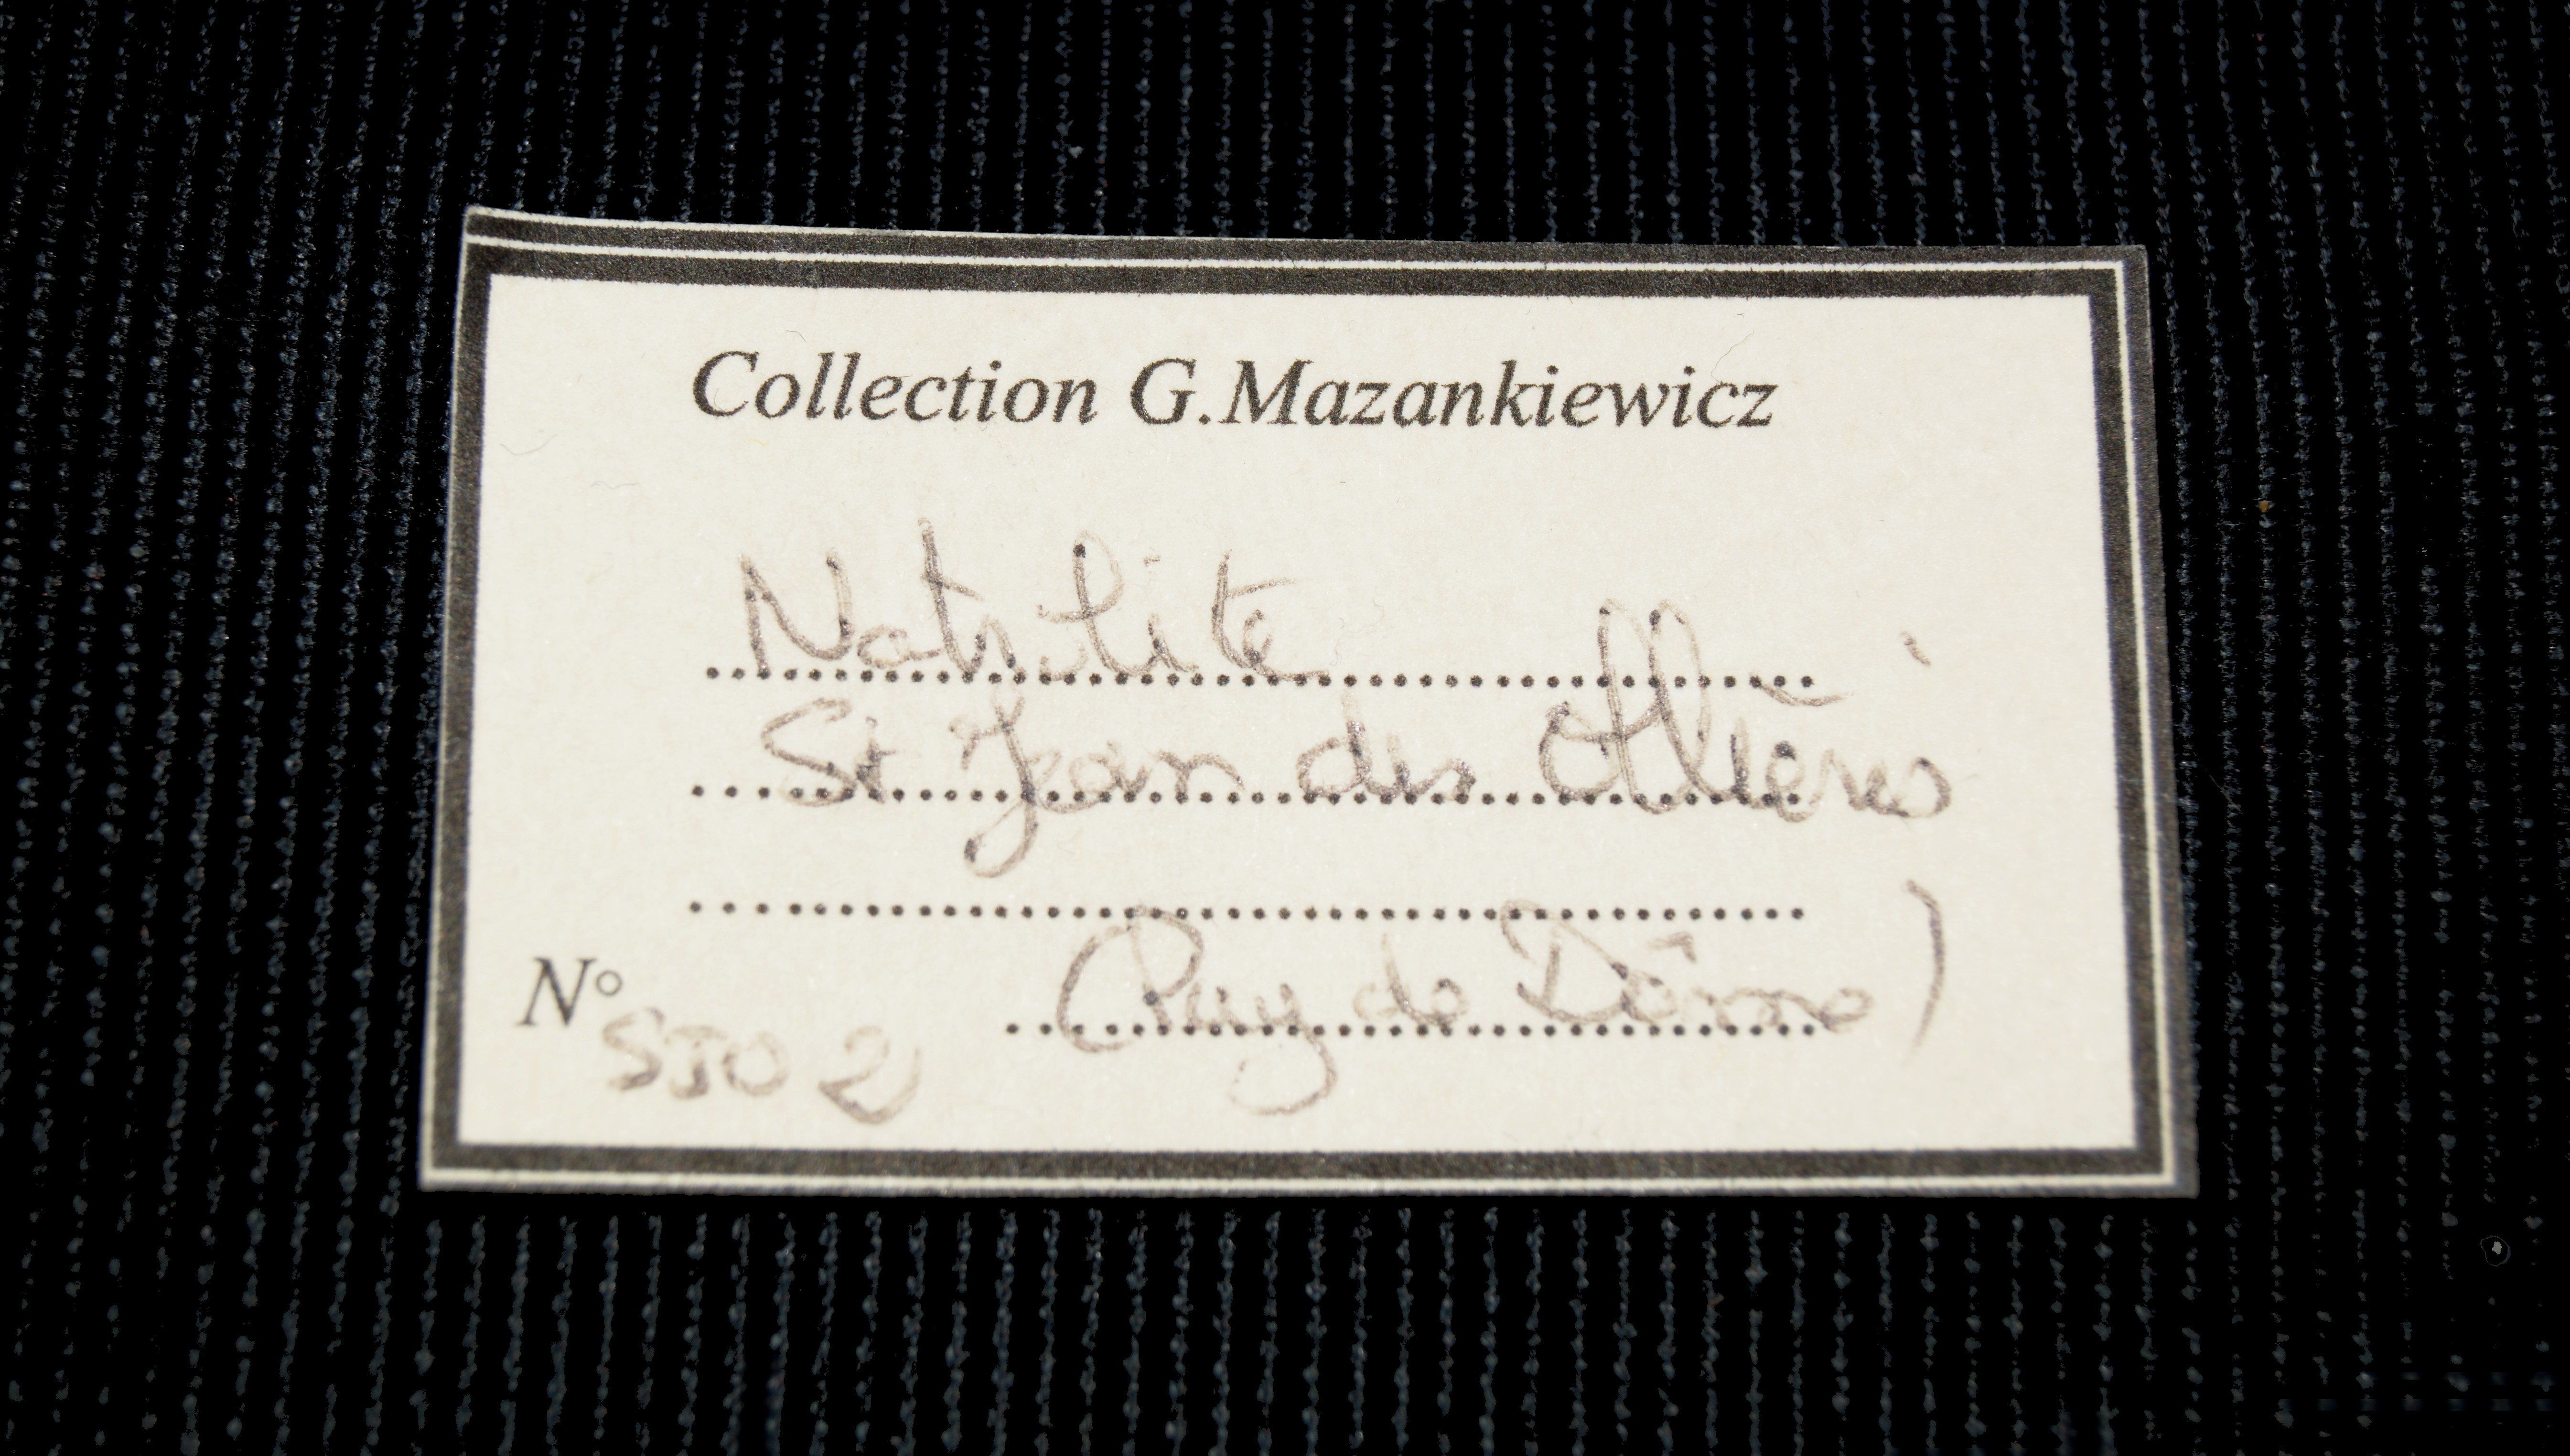 Collection G.Mazankiewicz
Natrolite
St Jean des Ollières
(Puy de Dôme)
N° SJO 2